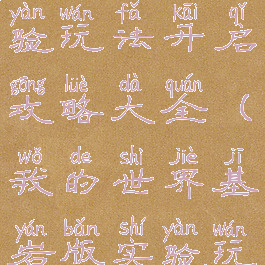 yàn wán fǎ kāi qǐ
验玩法开启
gōng lüè dà quán
攻略大全（
wǒ de shì jiè jī
我的世界基
yán bǎn shí yàn wán
岩版实验玩